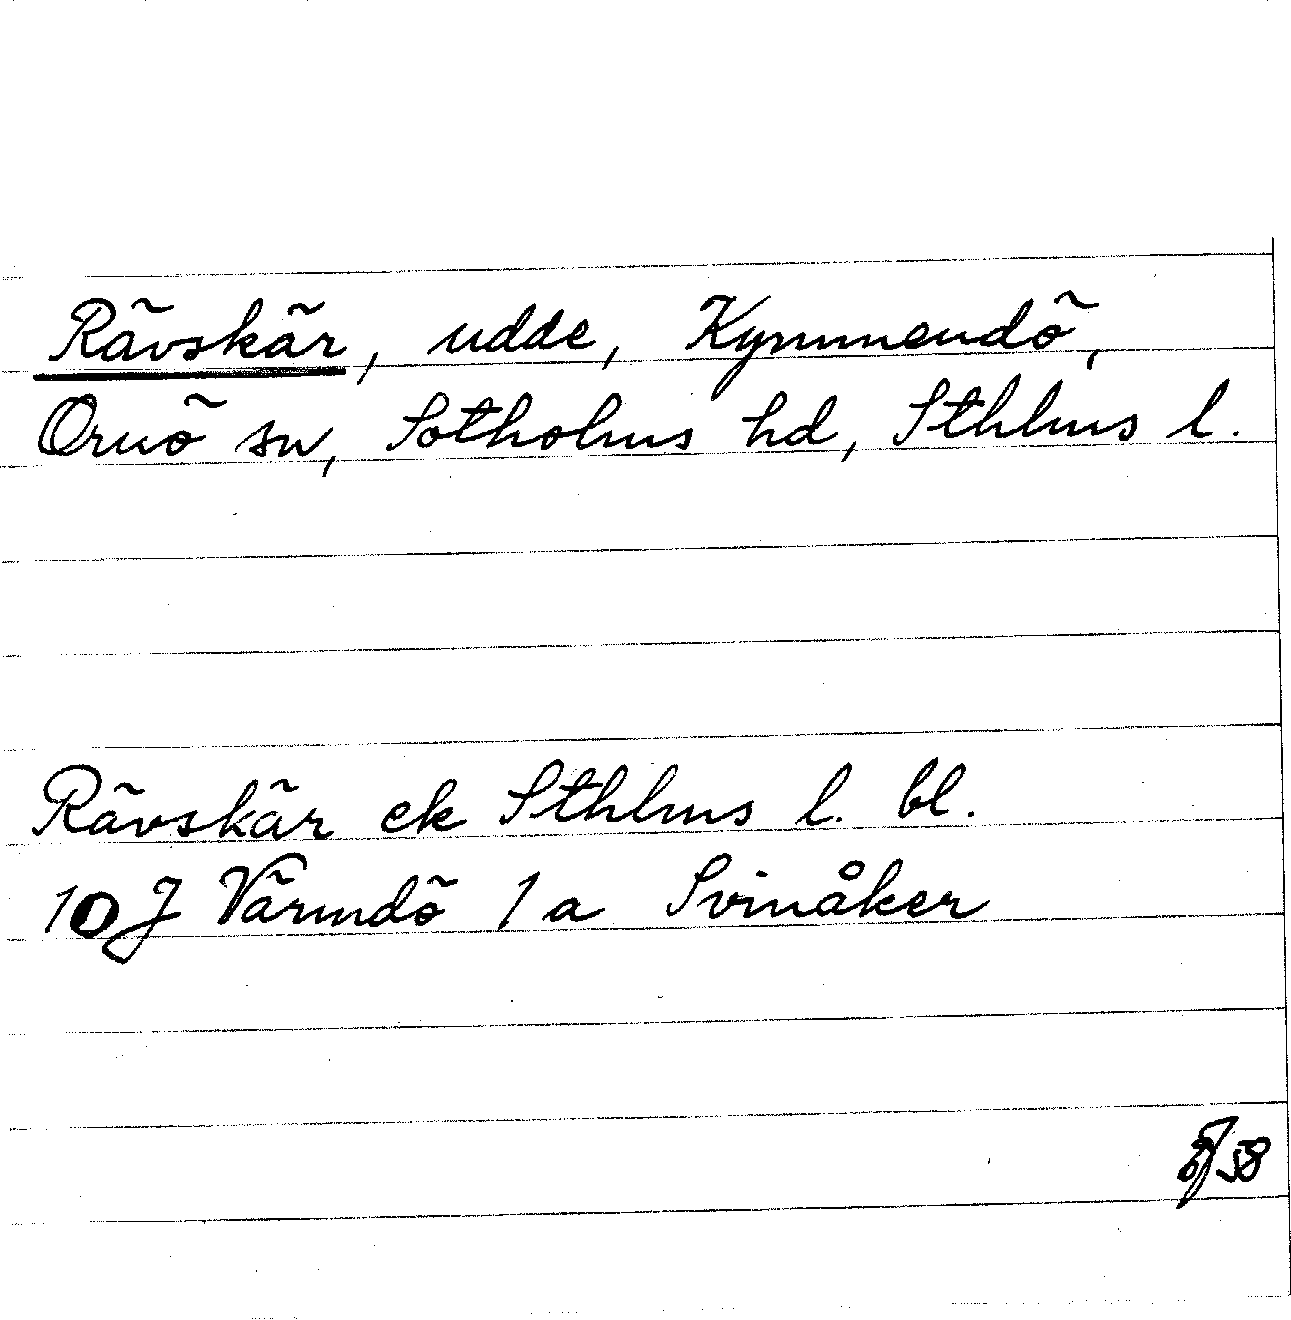 Rävskär, udde, Kymmendö,
Ornö sn, Sotholms hd, Sthlms l.
Rävskär ek Sthlms l. bl.
10 J Värmdö 1 a Svinåker
58